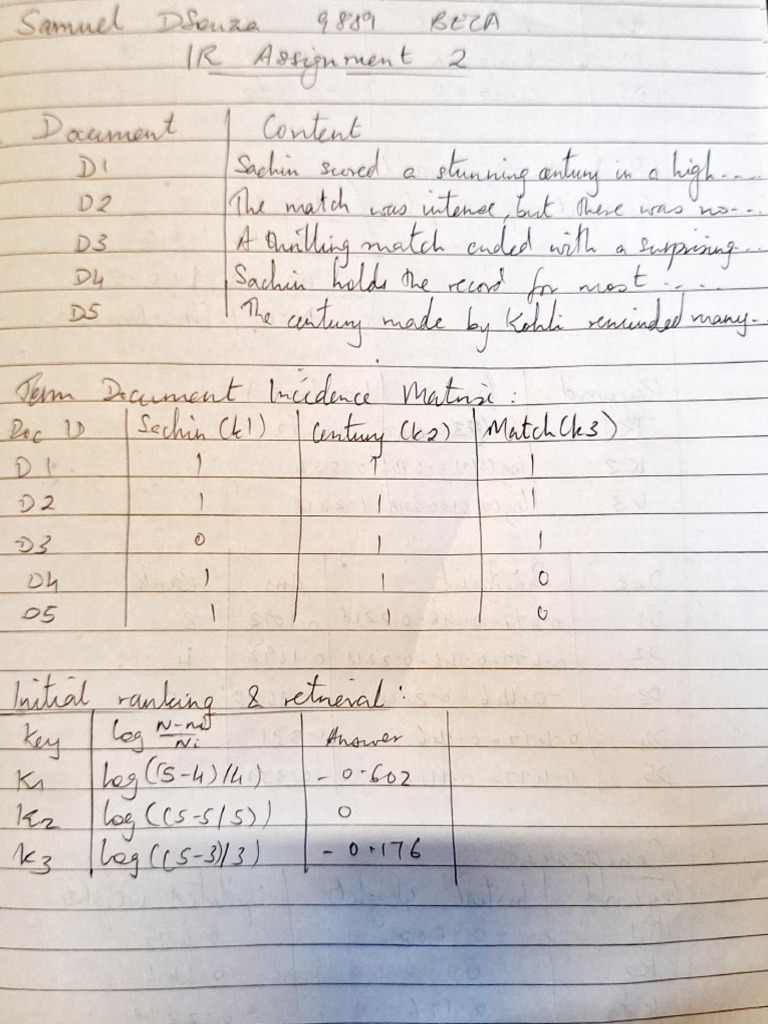 Samuel DSouza 9889 BECA
IR Assignment 2
Document Content
D1 Sachin scored a stunning century in a high....
D2 The match was intense, but there was no...
D3 A thrilling match ended with a surprising...
D4 Sachin holds the record for most .....
D5 The century made by Kohli reminded many..
Term Document Incidence Matrix :
Doc ID Sachin (k1) Century (k2) Match (k3)
D1 1 1 1
D2 1 1 1
D3 0 1 1
D4 1 1 0
D5 1 1 0
Initial ranking & retrieval :
Key log N-ni/Ni Answer
K1 log((5-4)/4) -0.602
K2 log((5-5/5)) 0
K3 log((5-3)/3) -0.176